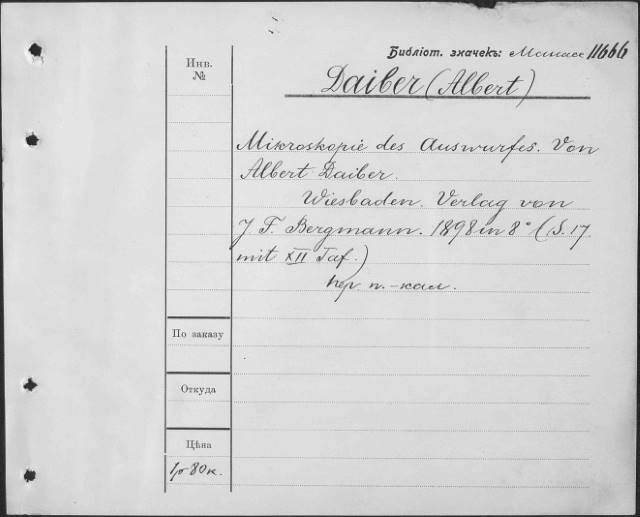 Библіот. значекъ: 11666
Инв.
№
Daiber (Albert)
Mikroskopie des Auswurfes. Von
Albert Daiber.
Wiesbaden. Verlag von
J. F. Bergmann. 1898 in 8° (S. 17
mit XII Taf.)
пер. п.-кал.
По заказу
Откуда
Цѣна
1р 80к.